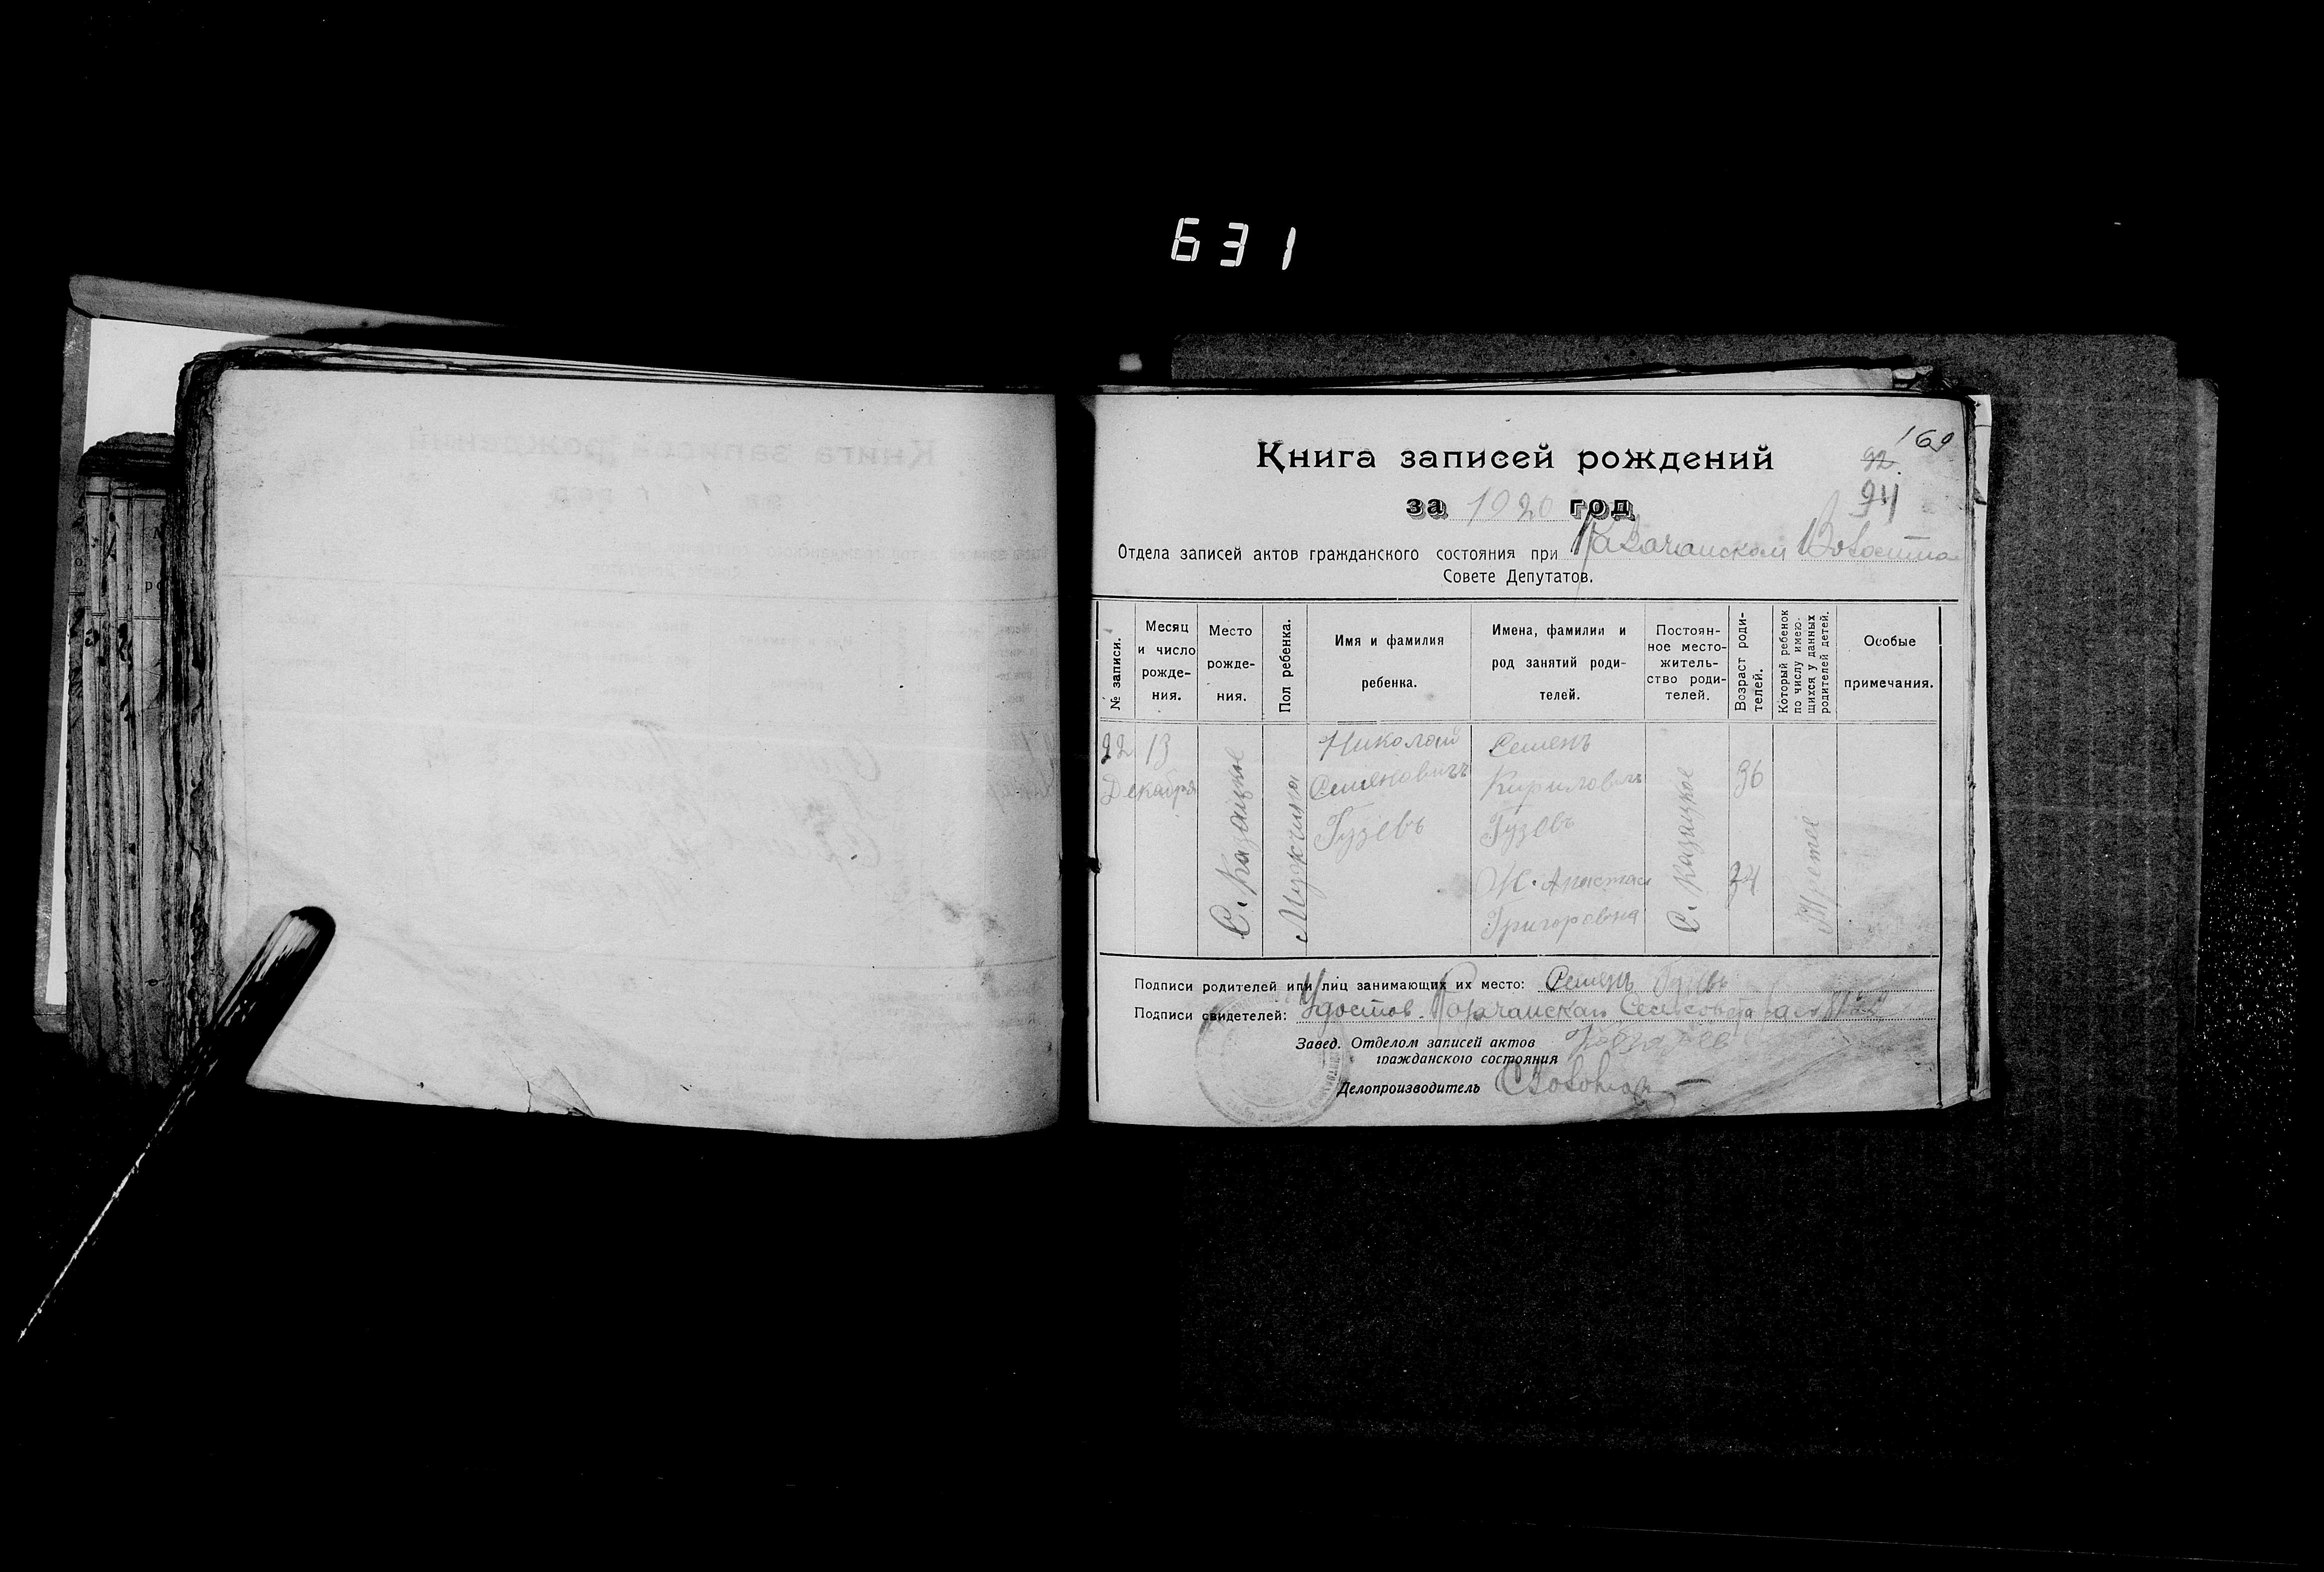 631
169
Книга записей рождений
92
за 1920 год
94
Отдела записей актов гражданского состояния при
Совете Депутатов.
№ записи.
Месяц и число рожде-ния.
Место рожде-ния.
Пол ребенка.
Имя и фамилия ребенка.
Имена, фамилии и род занятий роди-телей.
Постоян-ное место-житель-ство роди-телей.
Возраст роди-телей.
Который ребенок по числу имею-щихся у данных родителей детей.
Особые примечания.
22
13
Декабря
С. Казацкое
Мужчина
Николай
Семеновичъ
Гузевъ
Семенъ
Кириловичъ
Гузевъ
Ж. Анастас
Григоровна
С. Казацкое
36
34
Третее
Подписи родителей или лиц занимающих их место: Семенъ Гузевъ
Подписи свидетелей: Удостов.
Завед. Отделом записей актов
гражданского состояния
Делопроизводитель